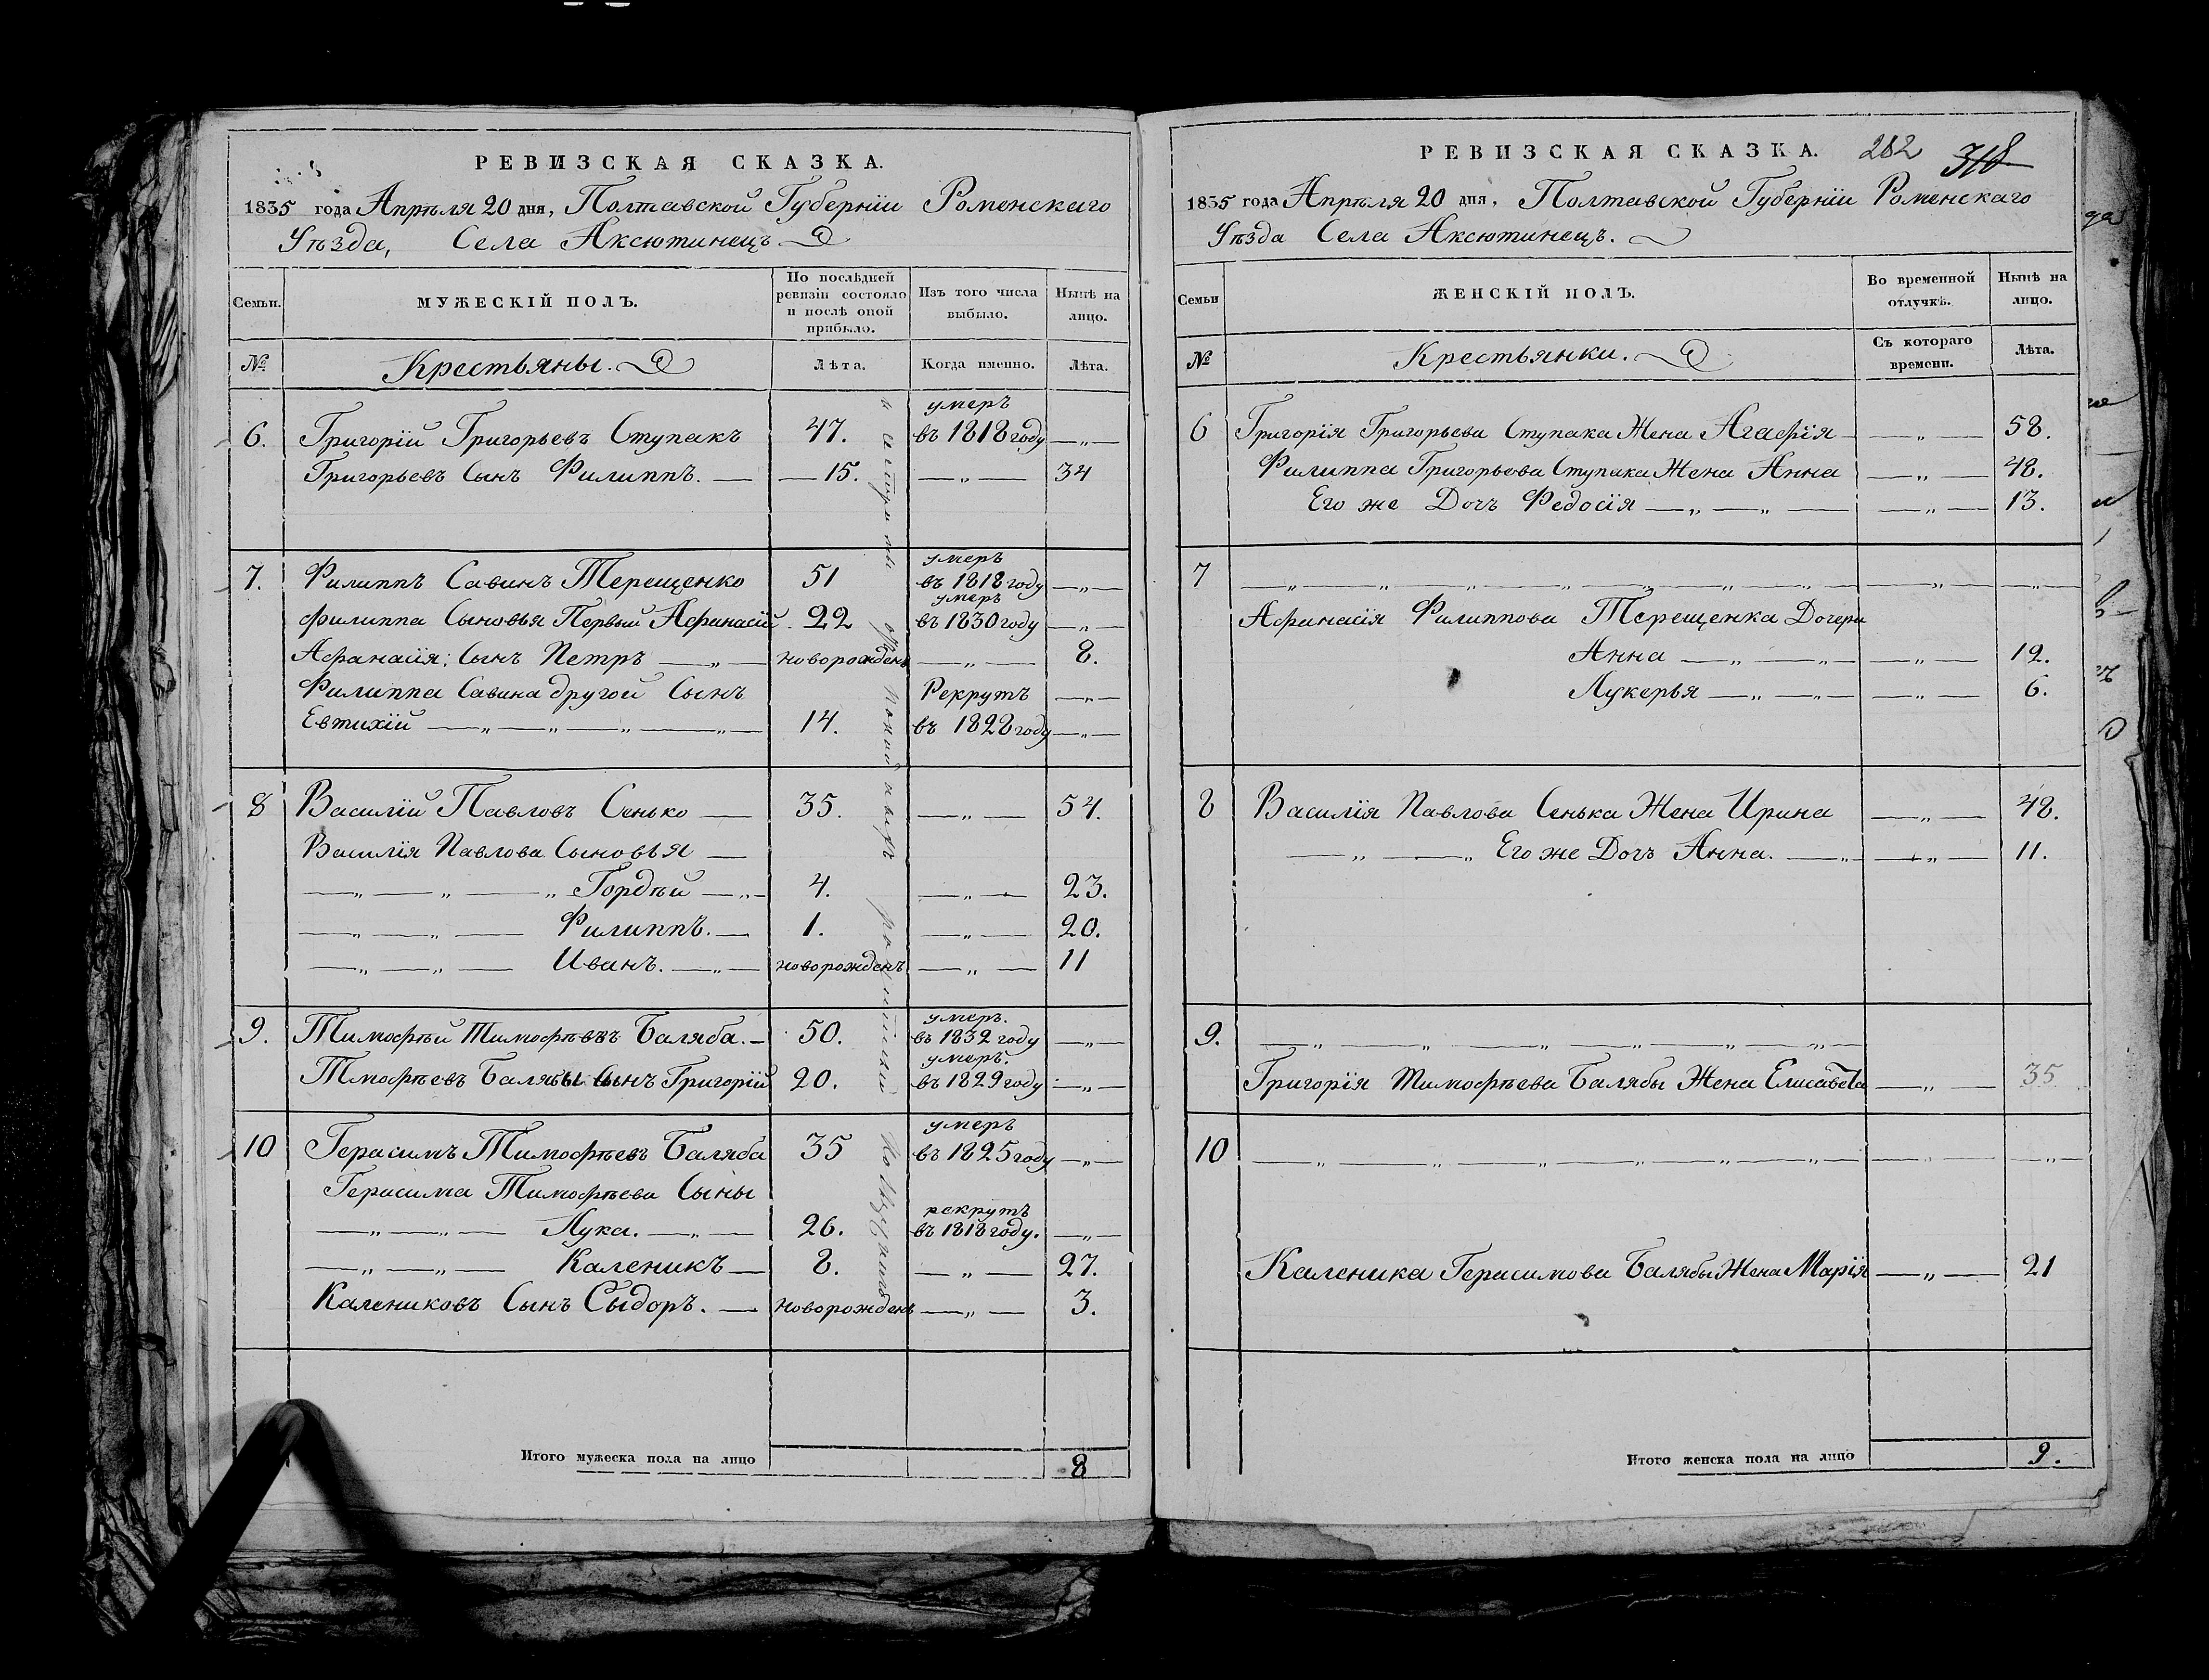 РЕВИЗСКАЯ СКАЗКА.
1835 года Апрѣля 20 дня, Полтавской Губерніи Роменскаго
Уѣзда, Села Аксютинецъ
Семьи.
МУЖЕСКІЙ ПОЛЪ.
По послѣдней ревизіи состояло и послѣ оной прибыло.
Изъ того числа выбыло.
Нынѣ на лицо.
№ Крестьяны. Лѣта. Когда именно. Лѣта.
умеръ
6. Григорій Григорьевъ Ступакъ 47. въ 1818 году —„—
Григорьевъ Сынъ Филиппъ. — —15. —„— 34
умеръ
7. Филиппъ Савинъ Терещенко 51 въ 1818 году —„—
умеръ
Филиппа Сыновья Первый Афанасій. 22 въ 1830 году —„—
Афанасія: Сынъ Петръ —„— новорожденъ —„— 8.
Филиппа Савина другой Сынъ Рекрутъ —„—
Евтихій —„—„—„—„— 14. въ 1828 году —„—
8 Василій Павловъ Сенько — 35. —„— 54.
Василія Павлова Сыновья —
—„—„—„ Гордѣй —„— 4. —„— 23.
—„—„— Филиппъ. — 1. —„— 20.
—„—„— Иванъ. —„— новорожденъ —„— 11
умеръ.
9. Тимофѣй Тимофѣевъ Баляба. — 50. въ 1832 году —„—
умеръ.
Тмофѣевъ Балябы Сынъ Григорій 20. въ 1829 году —„—
умеръ
10 Герасимъ Тимофѣевъ Баляба 35 въ 1825 году —„—
Герасима Тимофѣева Сыны
рекрутъ
—„—„— Лука. —„— 26. въ 1818 году. —„—
—„—„— Каленикъ — 8. —„— 27.
Калениковъ Сынъ Сыдоръ. — новорожденъ —„— 3.
Итого мужеска пола на лицо 8
РЕВИЗСКАЯ СКАЗКА. 282 318
1835 года Апрѣля 20 дня, Полтавской Губерніи Роменскаго
Уѣзда Села Аксютинецъ.
Семьи
ЖЕНСКІЙ ПОЛЪ.
Во временной отлучкѣ.
Нынѣ на лицо.
№ Крестьянки. Съ котораго времени. Лѣта.
6 Григорія Григорьева Ступака Жена Агафія — —„— 58.
Филиппа Григорьева Ступака Жена Анна —„— 48.
Его же Дочъ Федосія —„—„— —„— 13.
7 —„—„—„—„—„—„— —„— —„—
Афанасія Филиппова Терещенка Дочери
Анна —„—„— —„— 12.
Лукерья —„—„— —„— 6.
8 Василія Павлова Сенька Жена Ирина —„— 48.
—„—„ Его же Дочъ Анна. —„— —„— 11.
9. —„—„—„—„—„—„—
Григорія Тимофѣева Балябы Жена Елисавета —„— 35
10 —„—„—„—„—„—„— —„— —„—
Каленика Герасимова Балябы Жена Марія —„— 21
Итого женска пола на лицо 9.